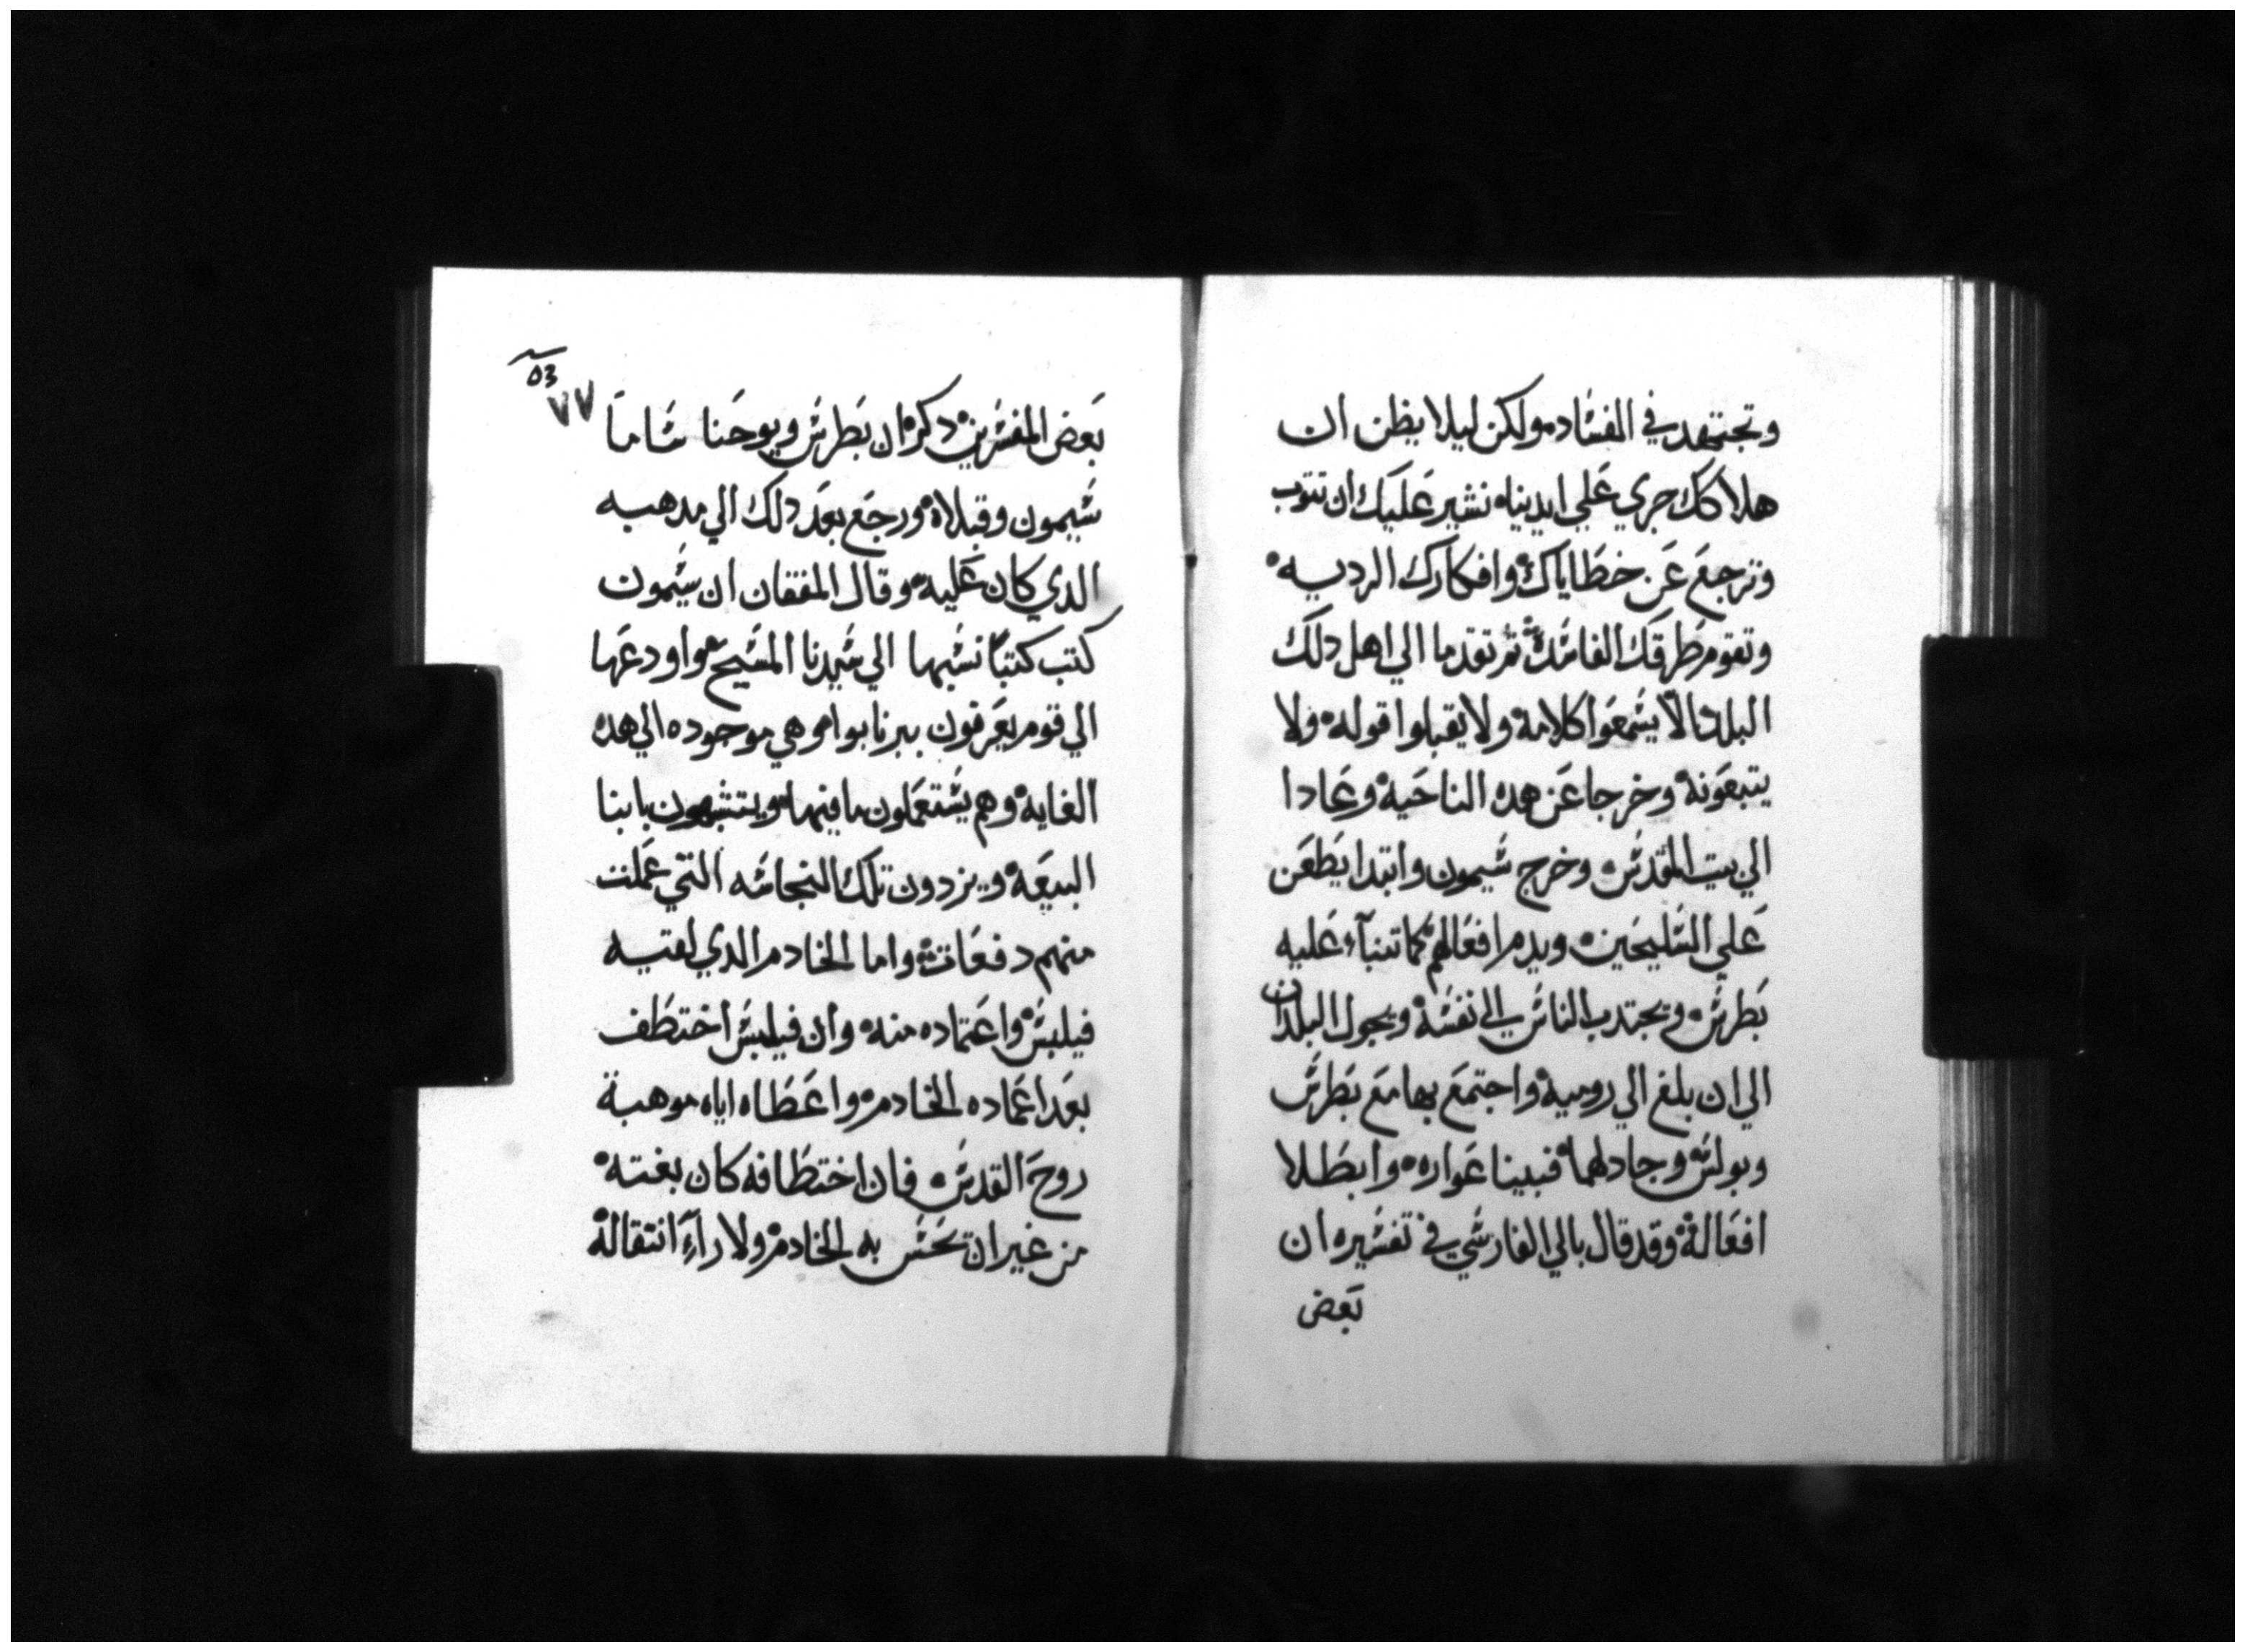 وتجتهد في الفساد ولكن ليلا يظن ان
هلاكك جري علي ايدينا نشير عليك ان تتوب
وترجع عن خطاياك وافكارك الرديه
وتقوم طرقك الفاسدة ثم تقدما الي اهل دلك
البلد الا يسمعوا كلامه ولا يقبلوا قوله ولا
يتبعونه وخرجا عن هده الناحيه وعادا
الي بيت المقدس وخرج سيمون وابتدا يطعن
علي السليحين ويدم افعالهم كما تنبآء عليه
بطرس ويجتدب الناس الي نفسه ويجول البلدان
الي ان بلغ الي روميه واجتمع بها مع بطرس
وبولس وجادلهما فبينا عواره وابطلا
افعاله وقد قال بالي الفارسي في تفسيره ان
بعض
53
٧٧
بعض المفسرين دكر ان بطرس ويوحنا ساما
سيمون وقبلاه ورجع بعد دلك الي مدهبه
الدي كان عليه وقال المفقان ان سيمون
كتب كتبا نسبها الي سيدنا المسيح واودعها
الي قوم يعرفون ببرنابوا وهي موجوده الي هده
الغايه وهم يستعملون ما فيها ويتشبهون بابنا
البيعه ويزدون تلك النجاسه التي عملت
منهم دفعات واما الخادم الدي لقيه
فيلبس واعتماده منه وان فيلبس اختطف
بعد اعماده الخادم واعطاه اياه موهبة
روح القدس فان اختطافه كان بغته
من غير ان يحس به الخادم ولا رآء انتقاله